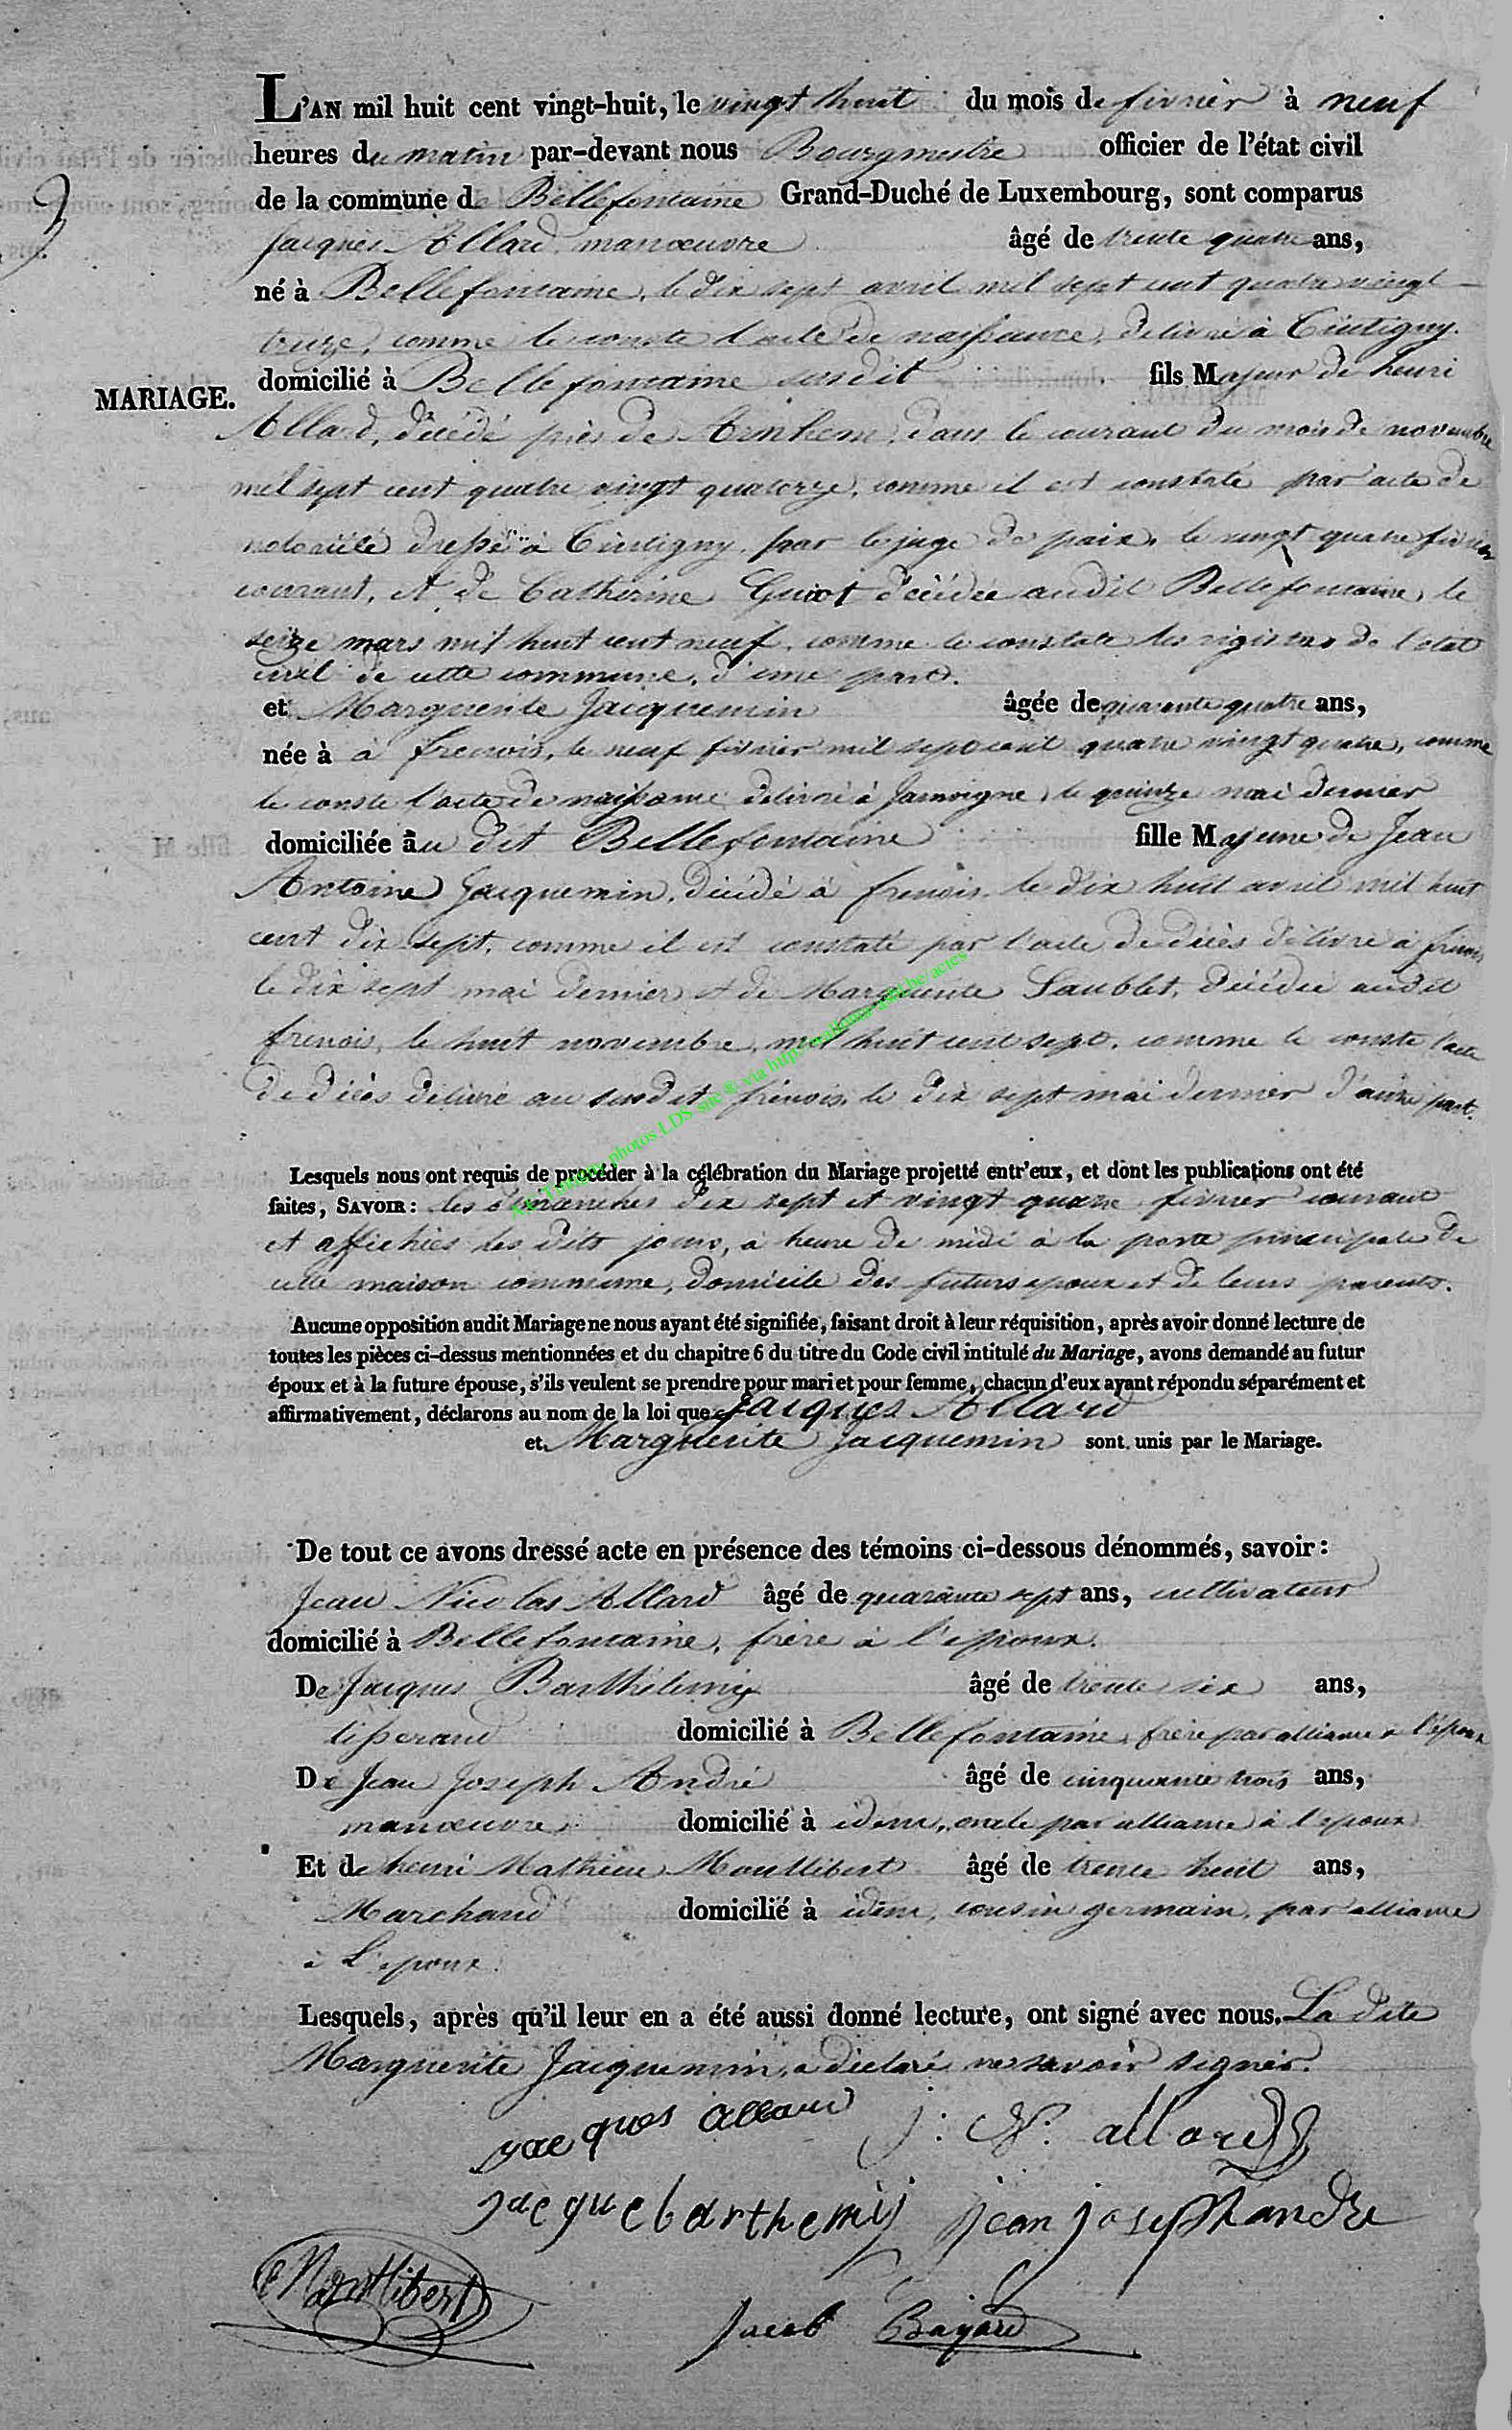 L'AN mil huit cent vingt-huit, le vingt huit du mois de fevrier à neuf
heures du matin par-devant nous Bourgmestre officier de l'état civil
de la commune de Bellefontaine Grand-Duché de Luxembourg, sont comparus
Jacques Allard manœuvre âgé de trente quatre ans,
né à Bellefontaine, le dix sept avril mil sept cent quatre vingt
treize, comme le conste l'acte de naissance, delivré à Tintigny.
domicilié à Bellefontaine susdit fils Majeur de henri
MARIAGE.
Allard, décédé près de Arnhem, dans le courant du mois de novembre
mil sept cent quatre vingt quatorze, comme il est constaté par acte de
notoriété dressé à Tintigny, par le juge de paix, le vingt quatre fevrier
courant, et de Catherine Guiot décédée audit Bellefontaine, le
seize mars mil huit cent neuf, comme le constate les registres de l'etat
civil de cette commune, d'une part.
et Marguerite Jacquemin âgée de quarante quatre ans,
née à à frenois, le neuf fevrier mil sept cent quatre vingt quatre, comme
le conste l'acte de naissance delivré à Jamoigne, le quinze mai dernier
domiciliée au dit Bellefontaine fille Majeure de Jean
Antoine Jacquemin, décédé à frenois, le dix huit avril mil huit
cent dix sept, comme il est constaté par l'acte de décès délivré à frenois
le dix sept mai dernier et de Marguerite Saublet, décédée audit
frenois, le huit novembre, mil huit cent sept, comme le conste l'acte
de décès délivré au susdit frenois, le dix sept mai dernier d'autre part.
Lesquels nous ont requis de procéder à la célébration du Mariage projetté entr'eux, et dont les publications ont été
faites, SAVOIR: les dimanches dix sept et vingt quatre fevrier courant
et affichées les dits jours, à heure de midi à la porte principale de
cette maison commune, domicile des futurs epoux et de leurs parents.
Aucune opposition audit Mariage ne nous ayant été signifiée, faisant droit à leur réquisition, après avoir donné lecture de
toutes les pièces ci-dessus mentionnées et du chapitre 6 du titre du Code civil intitulé du Mariage, avons demandé au futur
époux et à la future épouse, s'ils veulent se prendre pour mari et pour femme, chacun d'eux ayant répondu séparément et
affirmativement, déclarons au nom de la loi que Jacques Allard
et Marguerite Jacquemin sont unis par le Mariage.
De tout ce avons dressé acte en présence des témoins ci-dessous dénommés, savoir:
Jean Nicolas Allard âgé de quarante sept ans, cultivateur
domicilié à Bellefontaine, frère à l'epoux.
De Jacques Barthélemy âgé de trente six ans,
tisserand domicilié à Bellefontaine, frère par alliance à l'epoux
De Jean Joseph André âgé de cinquante trois ans,
manœuvre domicilié à idem, oncle par alliance à l'epoux
Et de henri Mathieu Montlibert âgé de trente huit ans,
Marchand domicilié à idem, cousin germain, par alliance
à L'epoux.
Lesquels, après qu'il leur en a été aussi donné lecture, ont signé avec nous. La dite
Marguerite Jacquemin, a déclaré ne savoir signer.
jacques allard j: N: allard
jacque barthemij jean joseph andre
Montlibert
Jacob Bayard